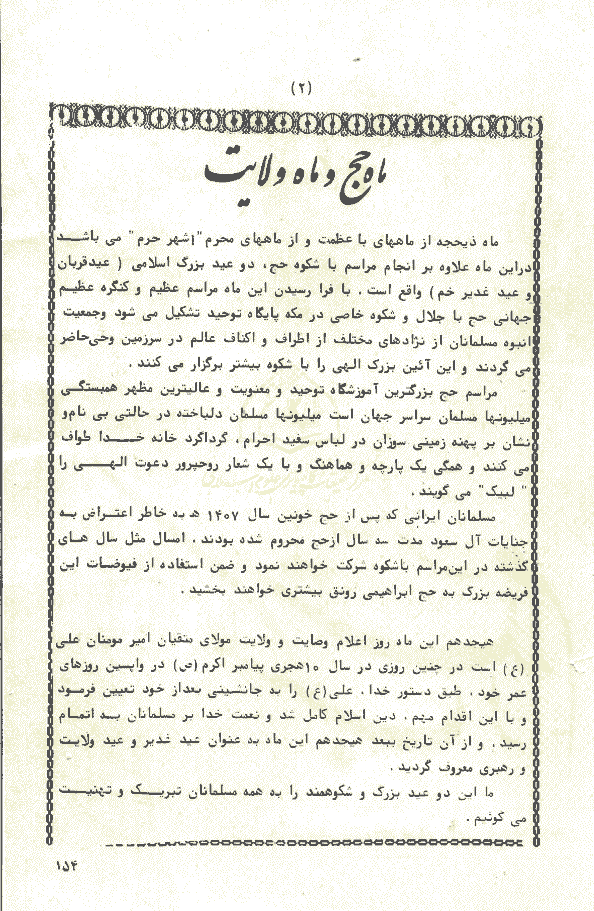 (۲)
ماه حج و ماه ولایت
ماه ذیحجه از ماههای با عظمت و از ماههای محرم "اشهر حرم" می باشد
دراین ماه علاوه بر انجام مراسم با شکوه حج، دو عید بزرگ اسلامی ( عیدقربان
و عید غدیر خم) واقع است . با فرا رسیدن این ماه مراسم عظیم و کنگره عظیم
جهانی حج با جلال و شکوه خاصی در مکه پایگاه توحید تشکیل می شود وجمعیت
انبوه مسلمانان از نژادهای مختلف از اطراف و اکناف عالم در سرزمین وحی‌حاضر
می گردند و این آئین بزرگ الهی را با شکوه بیشتر برگزار می کنند .
مراسم حج بزرگترین آموزشگاه توحید و معنویت و عالیترین مظهر همبستگی
میلیونها مسلمان سراسر جهان است میلیونها مسلمان دلباخته در حالتی بی نام‌و
نشان بر پهنه زمینی سوزان در لباس سفید احرام ، گرداگرد خانه خدا طواف
می کنند و همگی یک پارچه و هماهنگ و با یک شعار روحپرور دعوت الهی را
" لبیک" می گویند .
مسلمانان ایرانی که پس از حج خونین سال ۱۴۰۷ ه به خاطر اعتراض به
جنایات آل سعود مدت سه سال ازحج محروم شده بودند ، امسال مثل سال های
گذشته در این‌مراسم باشکوه شرکت خواهند نمود و ضمن استفاده از فیوضات این
فریضه بزرگ به حج ابراهیمی رونق بیشتری خواهند بخشید .
هیجدهم این ماه روز اعلام وصایت و ولایت مولای متقیان امیر مومنان علی
(ع) است در چنین روزی در سال ۱۰هجری پیامبر اکرم(ص) در واپسین روزهای
عمر خود ، طبق دستور خدا ، علی(ع) را به جانشینی بعداز خود تعیین فرمود
و با این اقدام مهم ، دین اسلام کامل شد و نعمت خدا بر مسلمانان به اتمام
رسید . و از آن تاریخ ببعد هیجدهم این ماه به عنوان عید غدیر و عید ولایت
و رهبری معروف گردید .
ما این دو عید بزرگ و شکوهمند را به همه مسلمانان تبریک و تهنیت
می گوئیم .
۱۵۴